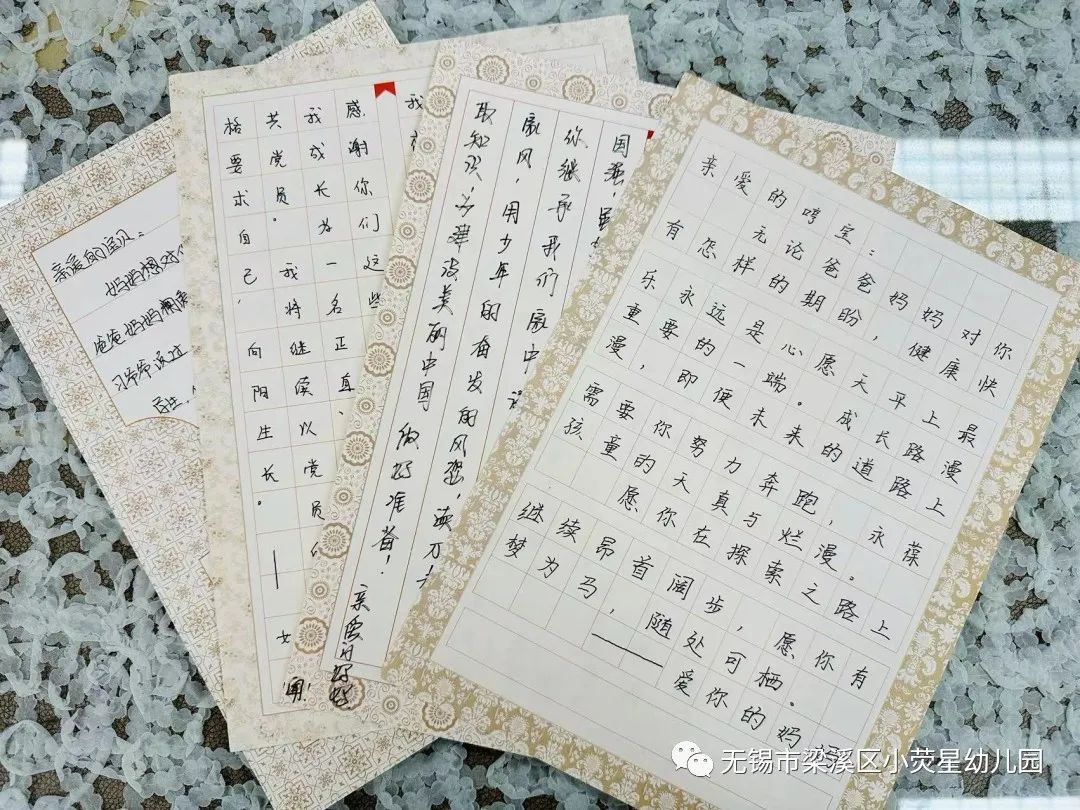 亲爱的宝贝：
妈妈想对
爸爸妈妈
习爷爷说过
感谢你们这些
我成长为一名正直、
共党员。我将继续以党员
格要求自己，向阳生长。
——女
国强
你继承我们家中
家风，用少年的奋发的风貌，读万
取知识，为建设美丽中国做好准备！
亲爱的哼宝：
无论爸爸妈妈对你
有怎样的期盼，健康快
乐永远是心愿天平上最
重要的一端。成长路漫
漫，即便未来的道路上
需要你努力奔跑，永葆
孩童的天真与烂漫。
愿你在探索之路上
继续昂首阔步，愿你有
梦为马，随处可栖。
——爱你的妈妈
无锡市梁溪区小荧星幼儿园